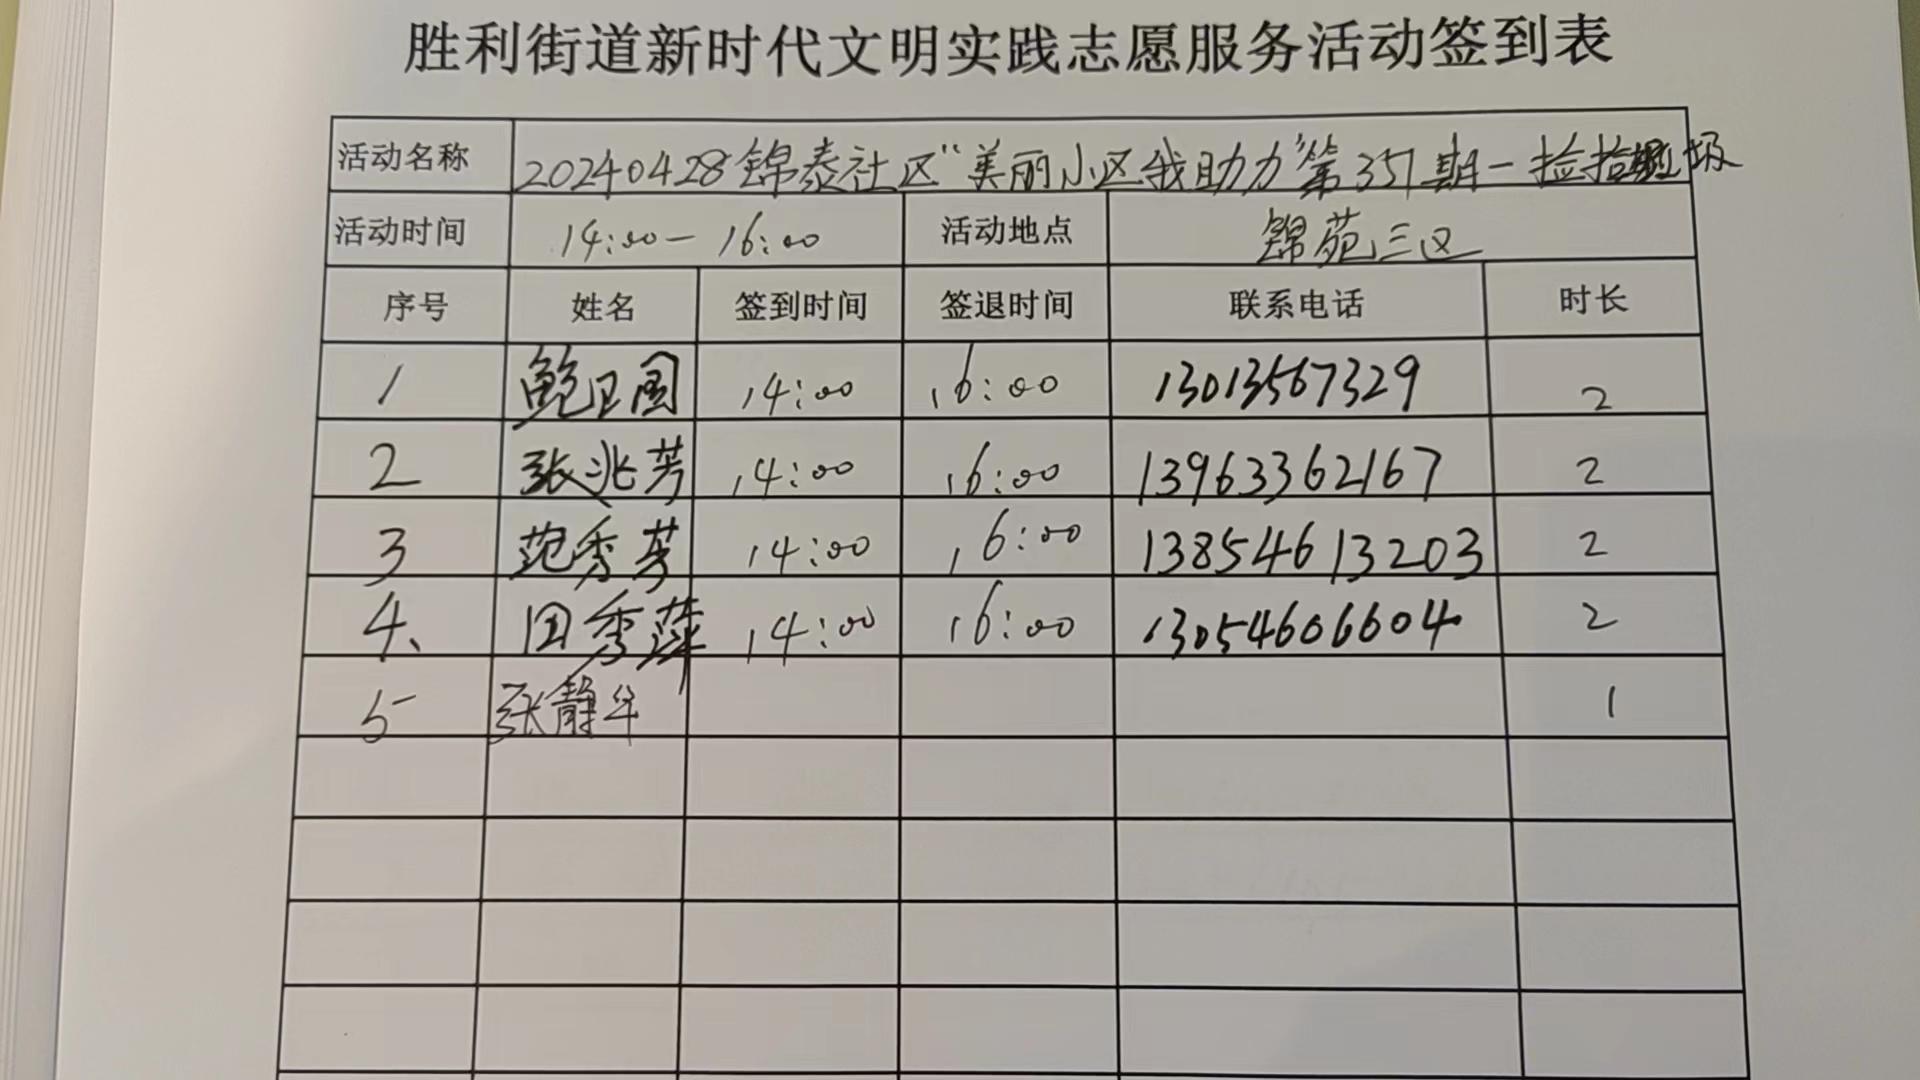 胜利街道新时代文明实践志愿服务活动签到表
活动名称 20240428锦泰社区"美丽小区我助力"第351期-捡拾垃圾
活动时间 14:00-16:00 活动地点 锦苑三区
序号 姓名 签到时间 签退时间 联系电话 时长
1 鲍卫国 14:00 16:00 13013567329 2
2 张兆芳 14:00 16:00 13963362167 2
3 范秀芳 14:00 16:00 13854613203 2
4、 田秀萍 14:00 16:00 13054606604 2
5 张静华 1